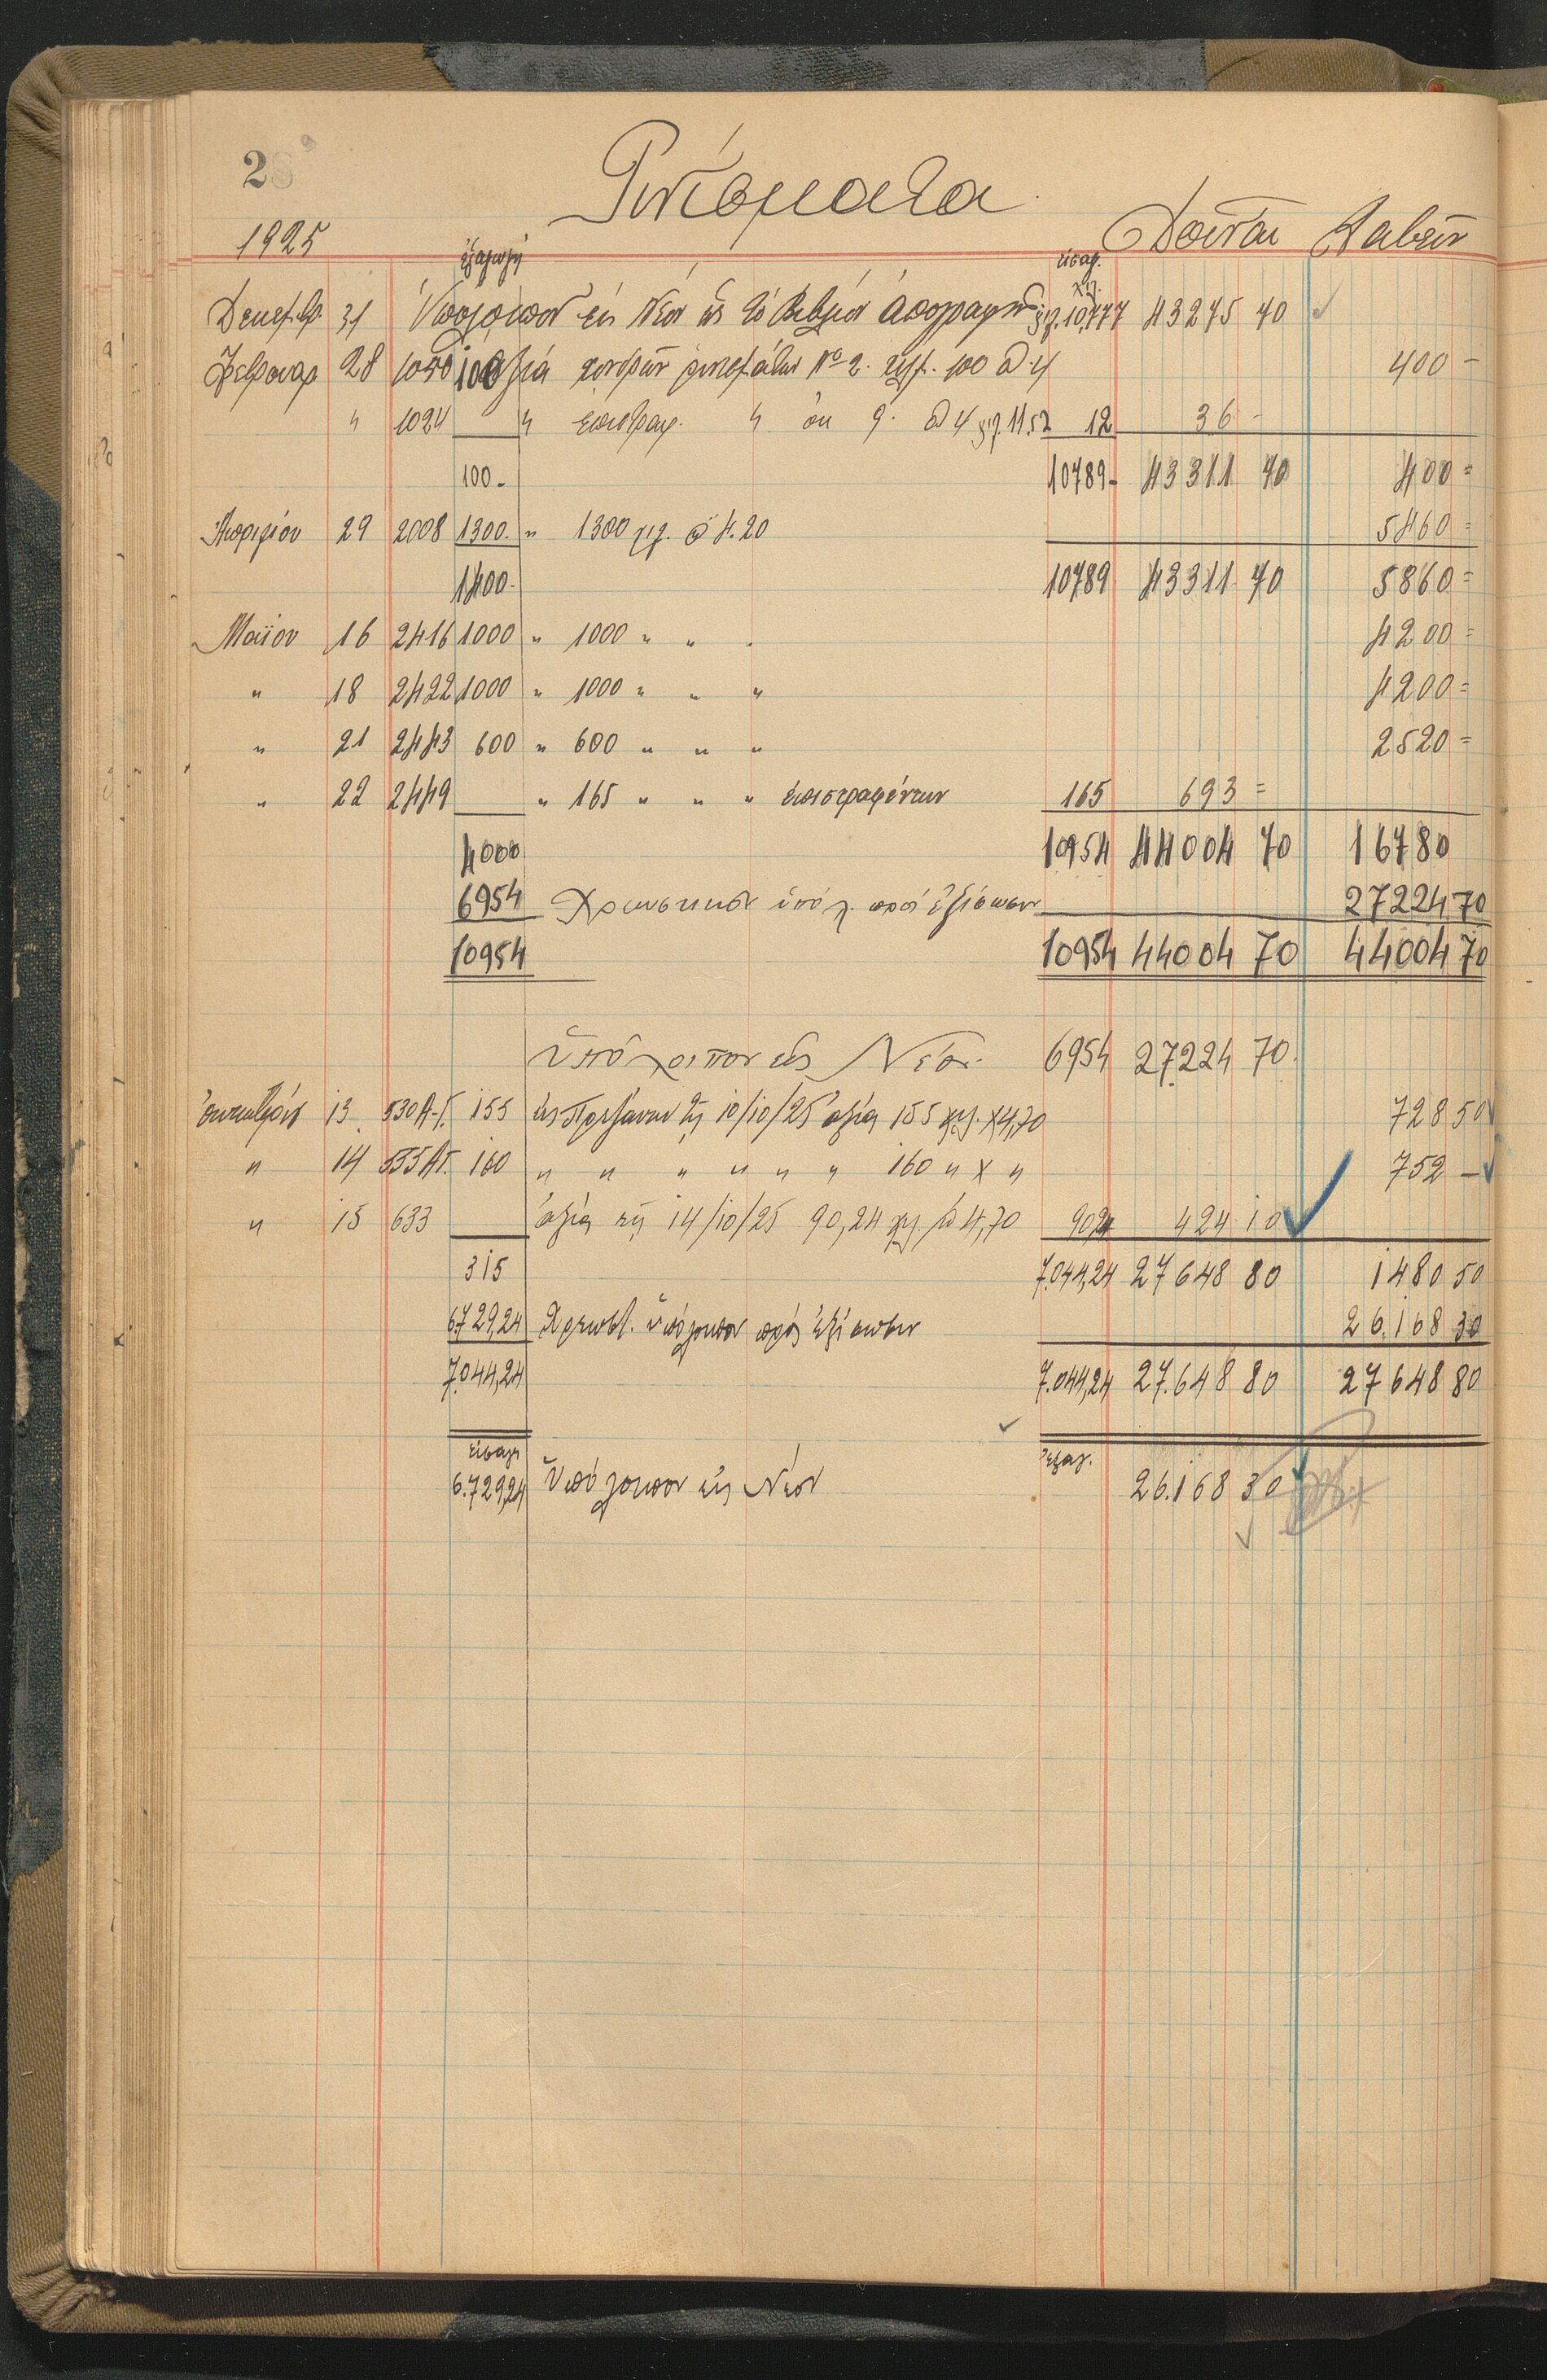 28
Ρινίσματα
1925 Δοῦναι Λαβεῖν
ἐξαγωγή εἰσαγ.
χιλ.
Δεκεμβρ 31 Ὑπόλοιπον εἰς Νέον ὡς τὸ Βιβλίον ἀπογραφῆς χιλ. 10,777 43275 70
Φεβρουαρ 28 1050 100 Ἀξία χονδρῶν ρινισμάτων Νο 2. χιλ. 100 @ 4 400 -
" 1024 " ἐπιστραφ. " ὀκ 9. @ 4 χιλ. 11,52 12 36 -
100 - 10789 - 43311 70 400 =
Ἀπριλίου 29 2008 1300. " 1300 χιλ. @ 4.20 5460 =
1400 - 10789 43311 70 5860 =
Μαΐου 16 2416 1000 " 1000 " " " 4200 =
" 18 2422 1000 " 1000 " " " 4200 =
" 21 2443 600 " 600 " " " 2520 =
" 22 2449 " 165 " " " ἐπιστραφέντων 165 693 =
4000 10954 44004 70 16780
6954 Χρεωστικὸν ὑπόλ. πρὸς ἐξίσωσιν 27224 70
10954 10954 44004 70 44004 70
Ὑπόλοιπον εἰς Νέον 6954 27224 70
13 530 Α-Γ. 155 10/10/25 ἀξία 155 χιλ. Χ 4,70 728 50
" 14 535 ΑΓ. 160 " " " " " " 160 " Χ " 752 -
" 15 633 ἀξία τῇ 14/10/25 90,24 χιλ. @ 4,70 90,24 424 10
315 7.044,24 27648 80 1480 50
6.729,24 Χρεωστ. ὑπόλοιπον πρὸς ἐξίσωσιν 26.168 30
7.044,24 7.044,24 27.648 80 27648 80
εἰσαγ. ἐξαγ.
6.729,24 Ὑπόλοιπον εἰς Νέον 26.168 30